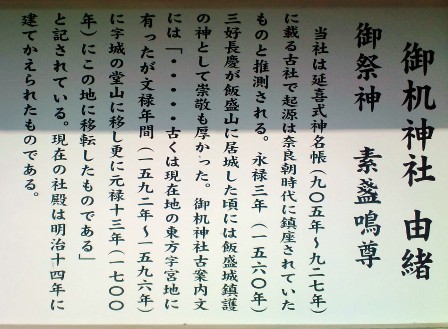 御机神社 由緒
御祭神 素盞鳴尊
当社は延喜式神名帳(九〇五年〜九二七年)
に載る古社で起源は奈良朝時代に鎮座されていた
ものと推測される。永禄三年(一五六〇年)
三好長慶が飯盛山に居城した頃には飯盛城鎮護
の神として崇敬も厚かった。御机神社古案内文
には「・・・・古くは現在地の東方字宮地に
有ったが文禄年間(一五九二年〜一五九六年)
に字城の堂山に移し更に元禄十三年(一七〇〇
年)にこの地に移転したものである」
と記されている。現在の社殿は明治十四年に
建てかえられたものである。